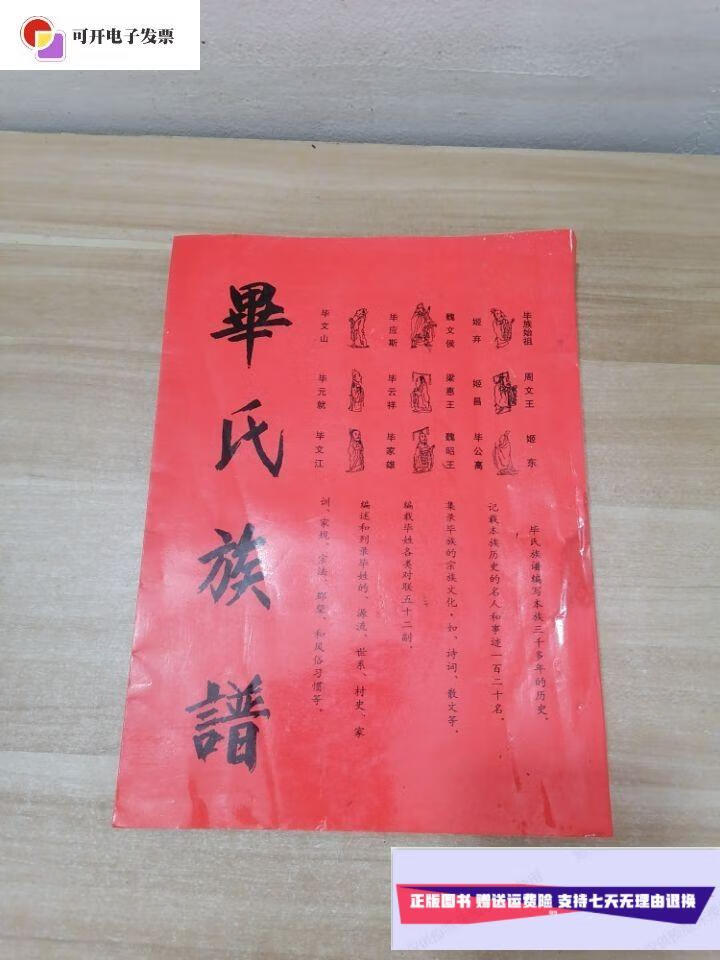 可开电子发票
畢氏族譜
毕族始祖
周文王
姬东
姬弃
姬昌
毕公高
魏文侯
梁惠王
魏昭王
毕应斯
毕云祥
毕家雄
毕文山
毕元就
毕文江
毕氏族谱编写本族三千多年的历史，
记载本族历史的名人和事迹一百二十名，
集录毕族的宗族文化，如、诗词、散文等，
编载毕姓各类对联五十二副，
编述和列录毕姓的、源流、世系、村史、家
训、家规、宗法、郡望、和风俗习惯等，
正版图书 赠送运费险 支持七天无理由退换